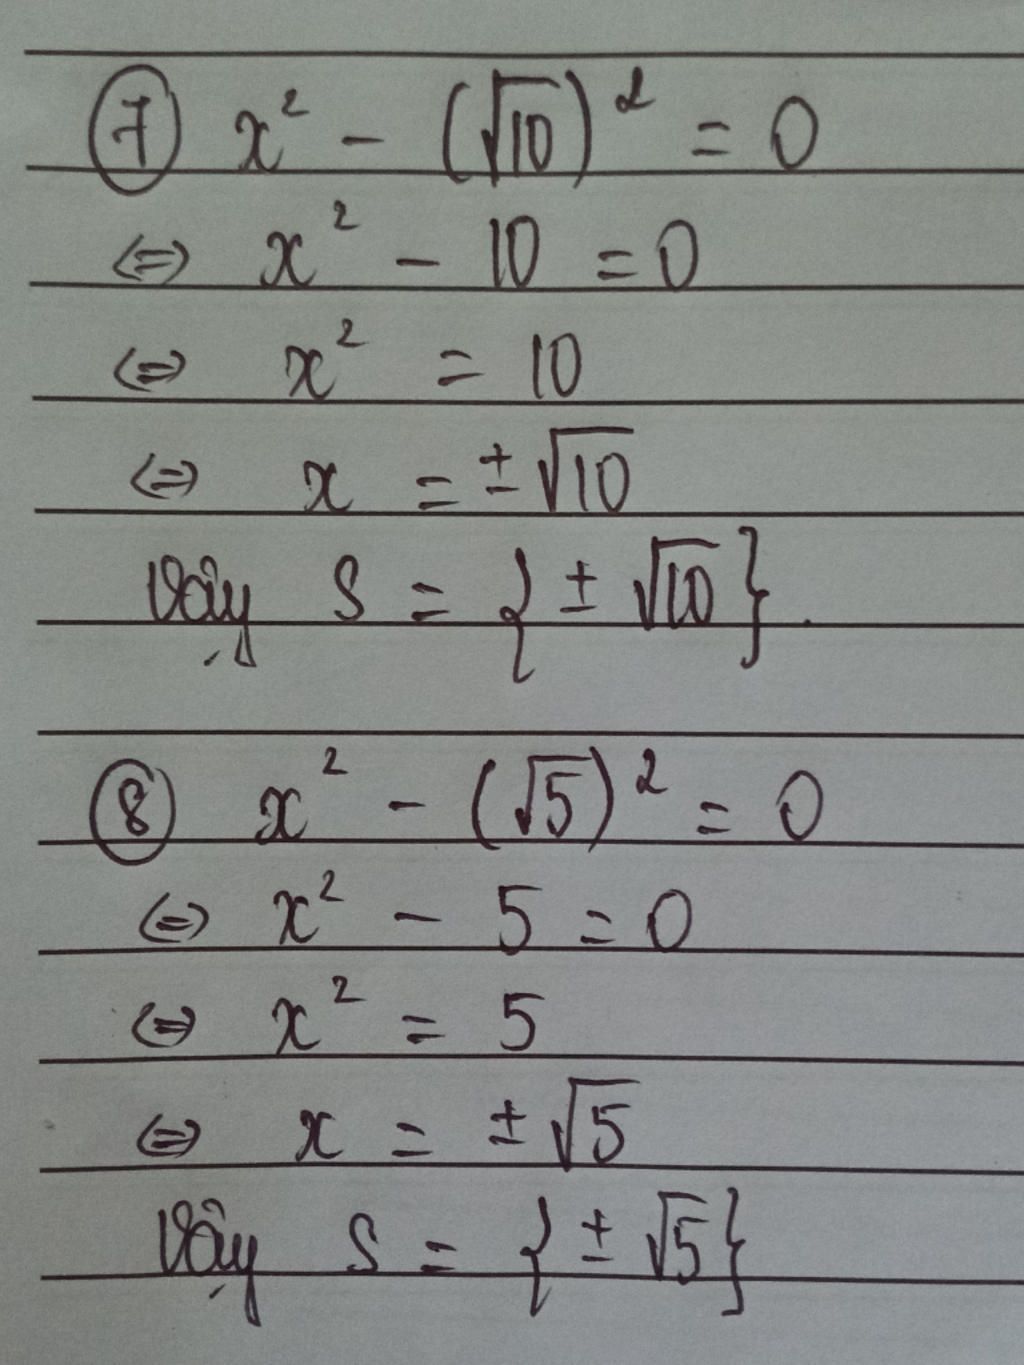 ⑦ x² - (√10)² = 0
⇔ x² - 10 = 0
⇔ x² = 10
⇔ x = ±√10
Vậy S = {±√10}.
⑧ x² - (√5)² = 0
⇔ x² - 5 = 0
⇔ x² = 5
⇔ x = ±√5
Vậy S = {±√5}